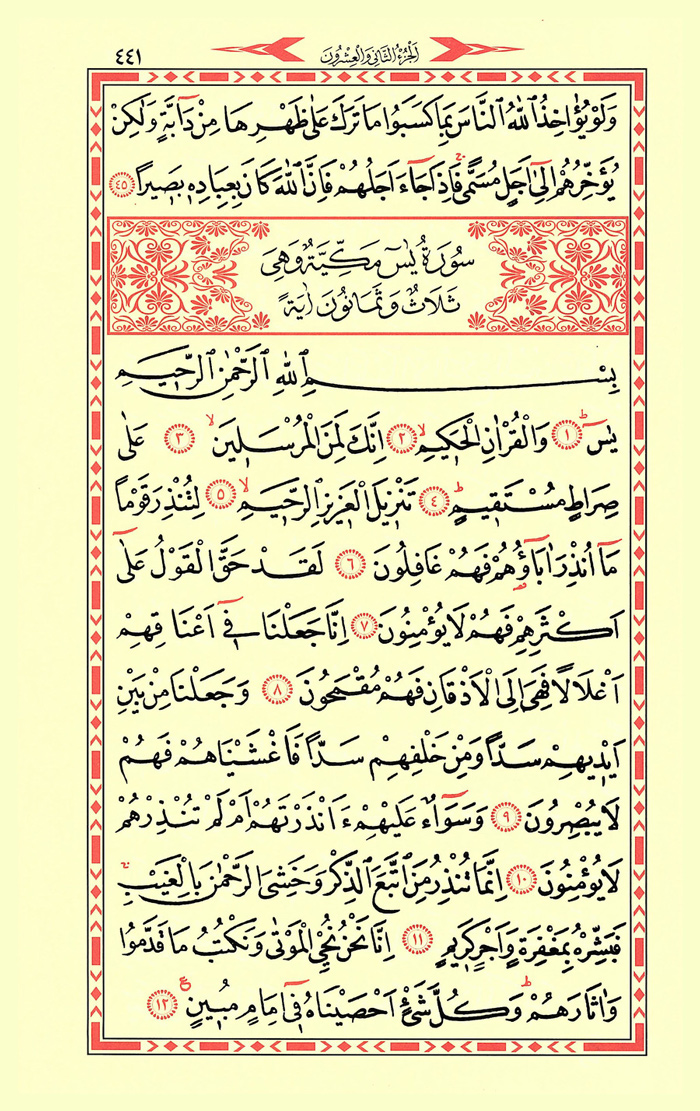 الجزء الثاني والعشرون
٤٤١
وَلَوْ يُؤَاخِذُ اللّٰهُ النَّاسَ بِمَا كَسَبُوا مَا تَرَكَ عَلٰى ظَهْرِهَا مِنْ دَآبَّةٍ وَلٰكِنْ
يُؤَخِّرُهُمْ اِلٰٓى اَجَلٍ مُسَمًّىۚ فَاِذَا جَٓاءَ اَجَلُهُمْ فَاِنَّ اللّٰهَ كَانَ بِعِبَادِه۪ بَص۪يرًا ﴿٤٥﴾
سُورَةُ يٰسٓ مَكِّيَّةٌ وَهِيَ
ثَلَاثٌ وَثَمَانُونَ اٰيَةً
بِسْمِ اللّٰهِ الرَّحْمٰنِ الرَّح۪يمِ
يٰسٓۜ ﴿١﴾ وَالْقُرْاٰنِ الْحَك۪يمِۙ ﴿٢﴾ اِنَّكَ لَمِنَ الْمُرْسَل۪ينَۙ ﴿٣﴾ عَلٰى
صِرَاطٍ مُسْتَق۪يمٍۜ ﴿٤﴾ تَنْز۪يلَ الْعَز۪يزِ الرَّح۪يمِۙ ﴿٥﴾ لِتُنْذِرَ قَوْمًا
مَٓا اُنْذِرَ اٰبَٓاؤُ۬هُمْ فَهُمْ غَافِلُونَ ﴿٦﴾ لَقَدْ حَقَّ الْقَوْلُ عَلٰٓى
اَكْثَرِهِمْ فَهُمْ لَا يُؤْمِنُونَ ﴿٧﴾ اِنَّا جَعَلْنَا ف۪ٓي اَعْنَاقِهِمْ
اَغْلَالًا فَهِيَ اِلَى الْاَذْقَانِ فَهُمْ مُقْمَحُونَ ﴿٨﴾ وَجَعَلْنَا مِنْ بَيْنِ
اَيْد۪يهِمْ سَدًّا وَمِنْ خَلْفِهِمْ سَدًّا فَاَغْشَيْنَاهُمْ فَهُمْ
لَا يُبْصِرُونَ ﴿٩﴾ وَسَوَٓاءٌ عَلَيْهِمْ ءَاَنْذَرْتَهُمْ اَمْ لَمْ تُنْذِرْهُمْ
لَا يُؤْمِنُونَ ﴿١٠﴾ اِنَّمَا تُنْذِرُ مَنِ اتَّبَعَ الذِّكْرَ وَخَشِيَ الرَّحْمٰنَ بِالْغَيْبِۚ
فَبَشِّرْهُ بِمَغْفِرَةٍ وَاَجْرٍ كَر۪يمٍ ﴿١١﴾ اِنَّا نَحْنُ نُحْيِ الْمَوْتٰى وَنَكْتُبُ مَا قَدَّمُوا
وَاٰثَارَهُمْۜ وَكُلَّ شَيْءٍ اَحْصَيْنَاهُ ف۪ٓي اِمَامٍ مُب۪ينٍ۟ ﴿١٢﴾